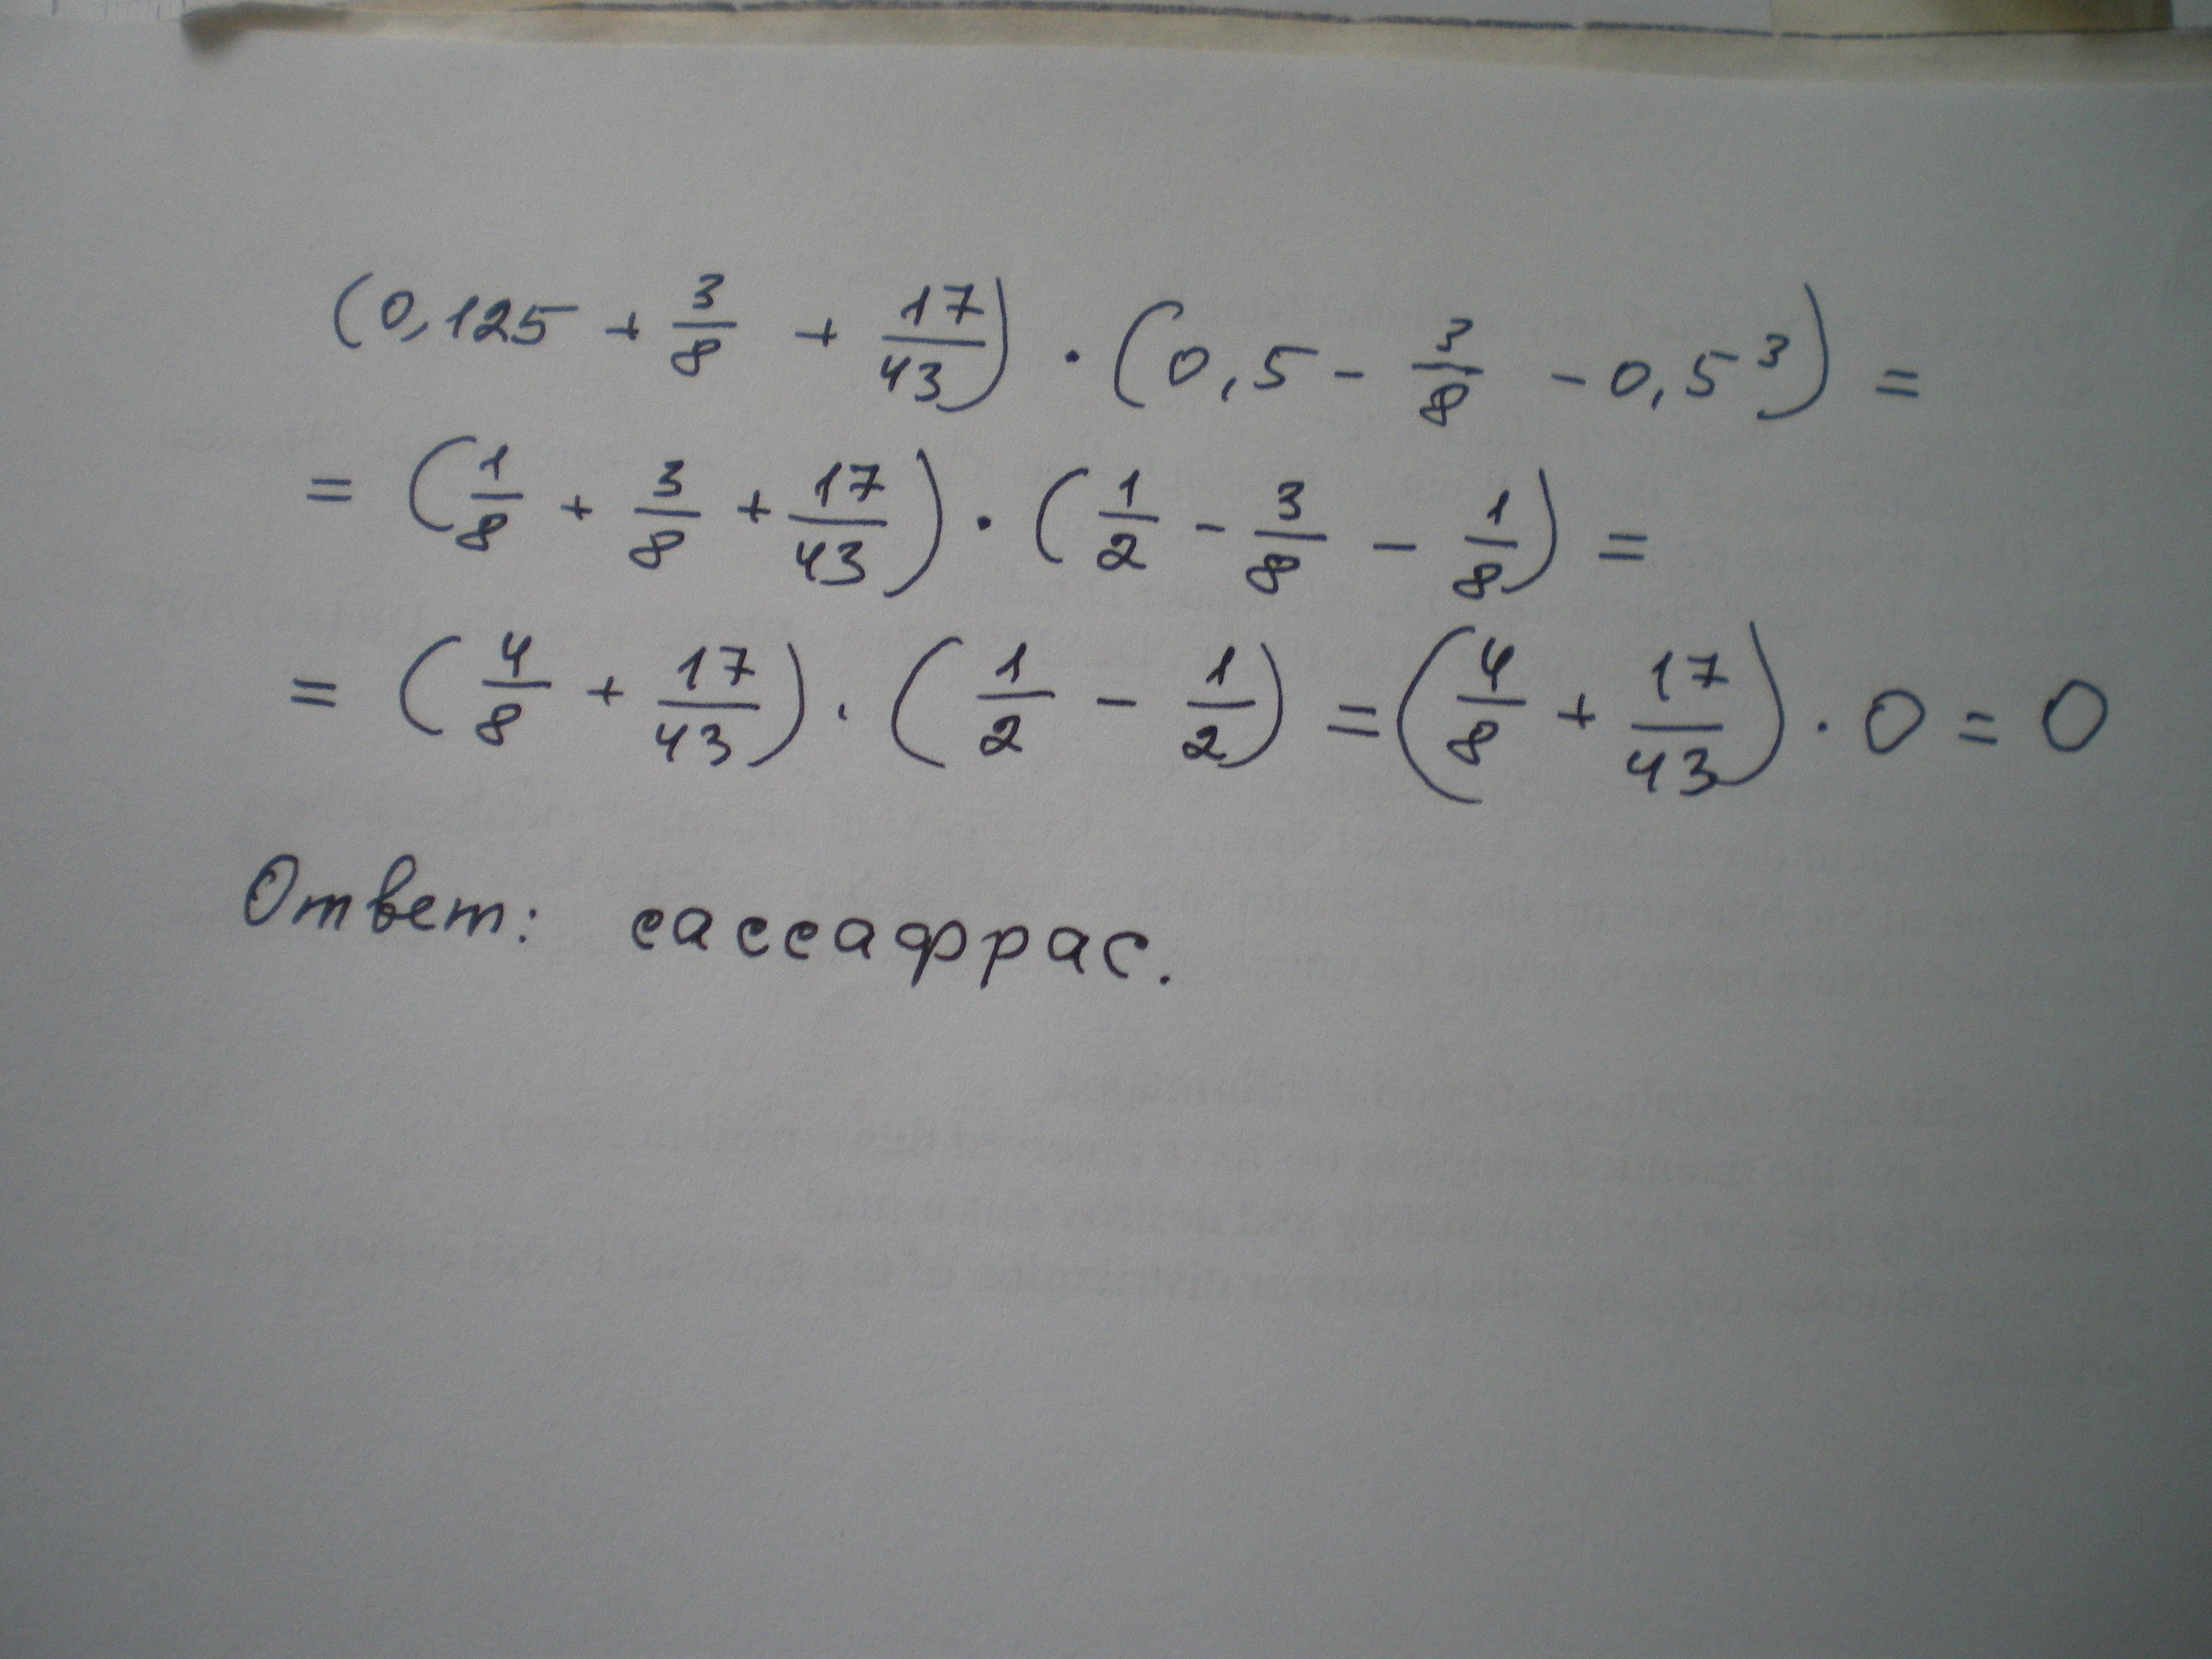 (0,125 + 3/8 + 17/43) · (0,5 - 3/8 - 0,5³) =
= (1/8 + 3/8 + 17/43) · (1/2 - 3/8 - 1/8) =
= (4/8 + 17/43) · (1/2 - 1/2) = (4/8 + 17/43) · 0 = 0
Ответ: сассафрас.